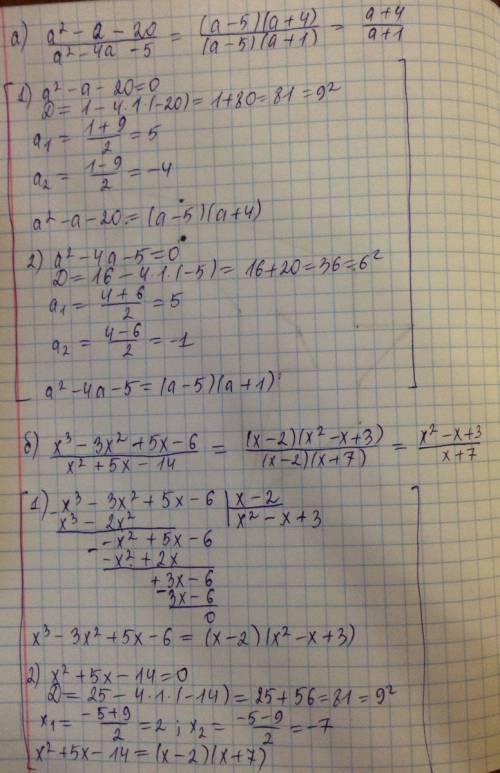 а) (a² - a - 20)/(a² - 4a - 5) = ((a-5)(a+4))/((a-5)(a+1)) = (a+4)/(a+1)
1) a² - a - 20 = 0
D = 1 - 4·1·(-20) = 1 + 80 = 81 = 9²
a₁ = (1+9)/2 = 5
a₂ = (1-9)/2 = -4
a² - a - 20 = (a-5)(a+4)
2) a² - 4a - 5 = 0
D = 16 - 4·1·(-5) = 16 + 20 = 36 = 6²
a₁ = (4+6)/2 = 5
a₂ = (4-6)/2 = -1
a² - 4a - 5 = (a-5)(a+1)
б) (x³ - 3x² + 5x - 6)/(x² + 5x - 14) = ((x-2)(x² - x + 3))/((x-2)(x+7)) = (x² - x + 3)/(x+7)
1) - x³ - 3x² + 5x - 6 | x - 2
x³ - 2x² | x² - x + 3
- -x² + 5x - 6
-x² + 2x
+3x - 6
- 3x - 6
0
x³ - 3x² + 5x - 6 = (x-2)(x² - x + 3)
2) x² + 5x - 14 = 0
D = 25 - 4·1·(-14) = 25 + 56 = 81 = 9²
x₁ = (-5+9)/2 = 2 ; x₂ = (-5-9)/2 = -7
x² + 5x - 14 = (x-2)(x+7)